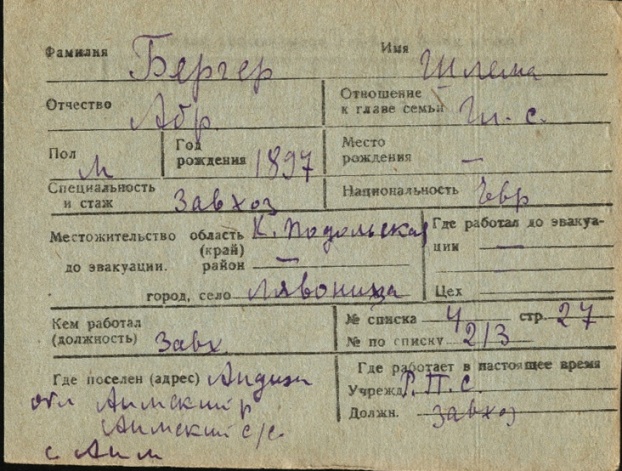 Фамилия Бергер Имя Шлема
Отчество Абр. Отношение к главе семьи Гл. с.
Пол м Год рождения 1897 Место рождения —
Специальность и стаж Завхоз Национальность Евр
Местожительство область (край) К. Подольская Где работал до эвакуации —
до эвакуации. район —
город, село Лявоница Цех
Кем работал (должность) Завх. № списка 4 стр. 27
№ по списку 213
Где поселен (адрес) Андижан Где работает в настоящее время
обл Аимский р Учрежд. Р.П.С.
Аимский с/с. Должн. завхоз
с Аим